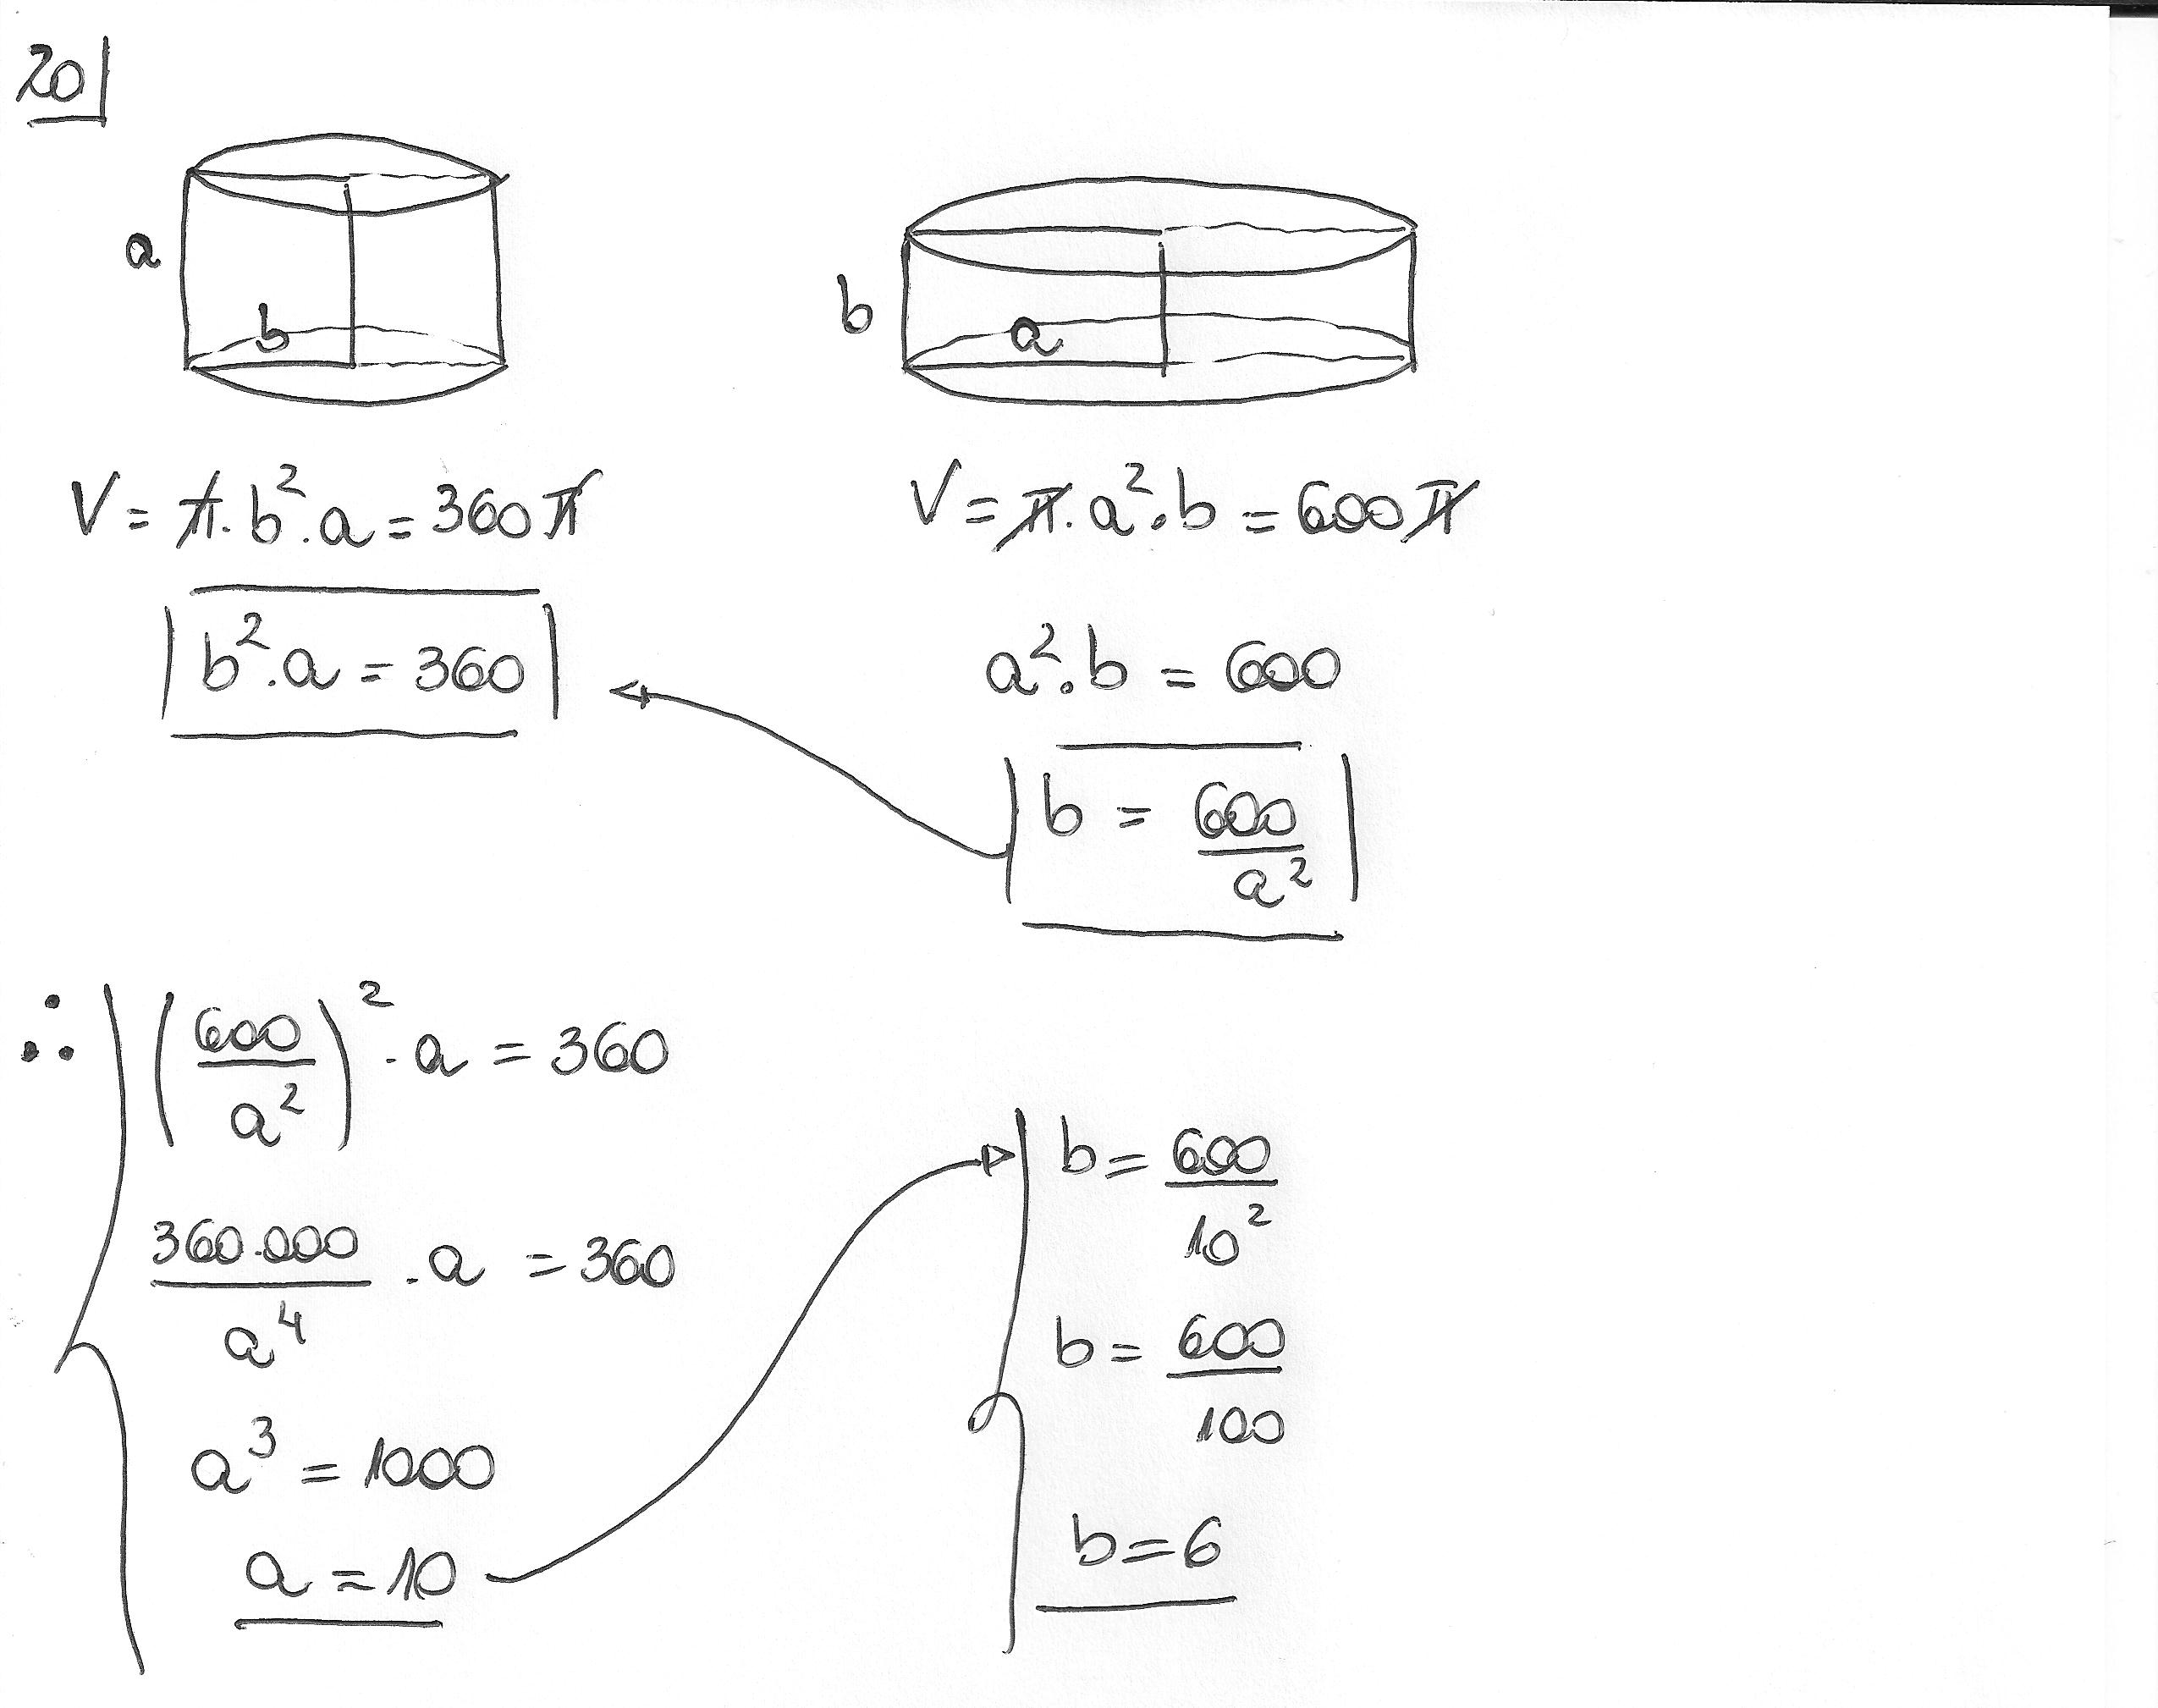 20
a
b
b
a
V = π . b² . a = 360π
V = π . a² . b = 600π
b² . a = 360
a² . b = 600
b = 600/a²
∴ (600/a²)² . a = 360
360.000/a⁴ . a = 360
a³ = 1000
a = 10
b = 600/10²
b = 600/100
b = 6